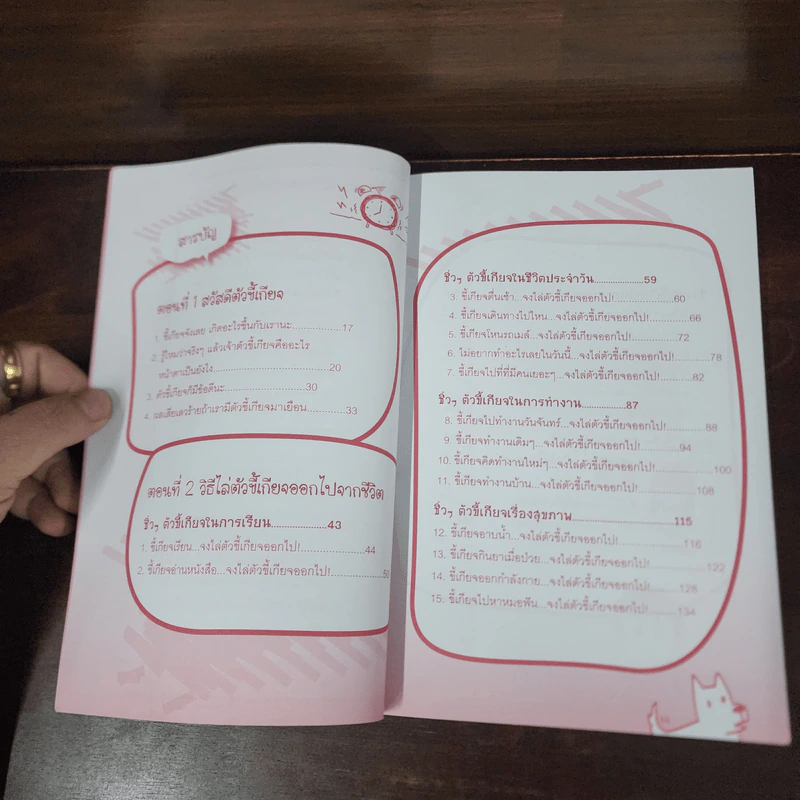 สารบัญ
ตอนที่ 1 สวัสดีตัวขี้เกียจ
1. ขี้เกียจจังเลย เกิดอะไรขึ้นกับเรานะ.................17
2. รู้ไหมว่าจริงๆ แล้วเจ้าตัวขี้เกียจคืออะไร
หน้าตาเป็นยังไง.................................20
3. ตัวขี้เกียจก็มีข้อดีนะ........................30
4. ผลเสียเลวร้ายถ้าเรามีตัวขี้เกียจมาเยือน.............33
ตอนที่ 2 วิธีไล่ตัวขี้เกียจออกไปจากชีวิต
ชิ่วๆ ตัวขี้เกียจในการเรียน....................43
1. ขี้เกียจเรียน...จงไล่ตัวขี้เกียจออกไป!....................44
2. ขี้เกียจอ่านหนังสือ...จงไล่ตัวขี้เกียจออกไป!..................50
ชิ่วๆ ตัวขี้เกียจในชีวิตประจำวัน..................59
3. ขี้เกียจตื่นเช้า...จงไล่ตัวขี้เกียจออกไป!..................60
4. ขี้เกียจเดินทางไปไหน...จงไล่ตัวขี้เกียจออกไป!.............66
5. ขี้เกียจโหนรถเมล์...จงไล่ตัวขี้เกียจออกไป!.............72
6. ไม่อยากทำอะไรเลยในวันนี้...จงไล่ตัวขี้เกียจออกไป!..........78
7. ขี้เกียจไปที่ที่มีคนเยอะๆ...จงไล่ตัวขี้เกียจออกไป!..........82
ชิ่วๆ ตัวขี้เกียจในการทำงาน..................87
8. ขี้เกียจไปทำงานวันจันทร์...จงไล่ตัวขี้เกียจออกไป!..........88
9. ขี้เกียจทำงานเดิมๆ...จงไล่ตัวขี้เกียจออกไป!..........94
10. ขี้เกียจคิดทำงานใหม่ๆ...จงไล่ตัวขี้เกียจออกไป!..........100
11. ขี้เกียจทำงานบ้าน...จงไล่ตัวขี้เกียจออกไป!..........108
ชิ่วๆ ตัวขี้เกียจเรื่องสุขภาพ..............................115
12. ขี้เกียจอาบน้ำ...จงไล่ตัวขี้เกียจออกไป!..................116
13. ขี้เกียจกินยาเมื่อป่วย...จงไล่ตัวขี้เกียจออกไป!.............122
14. ขี้เกียจออกกำลังกาย...จงไล่ตัวขี้เกียจออกไป!..........128
15. ขี้เกียจไปหาหมอฟัน...จงไล่ตัวขี้เกียจออกไป!..........134